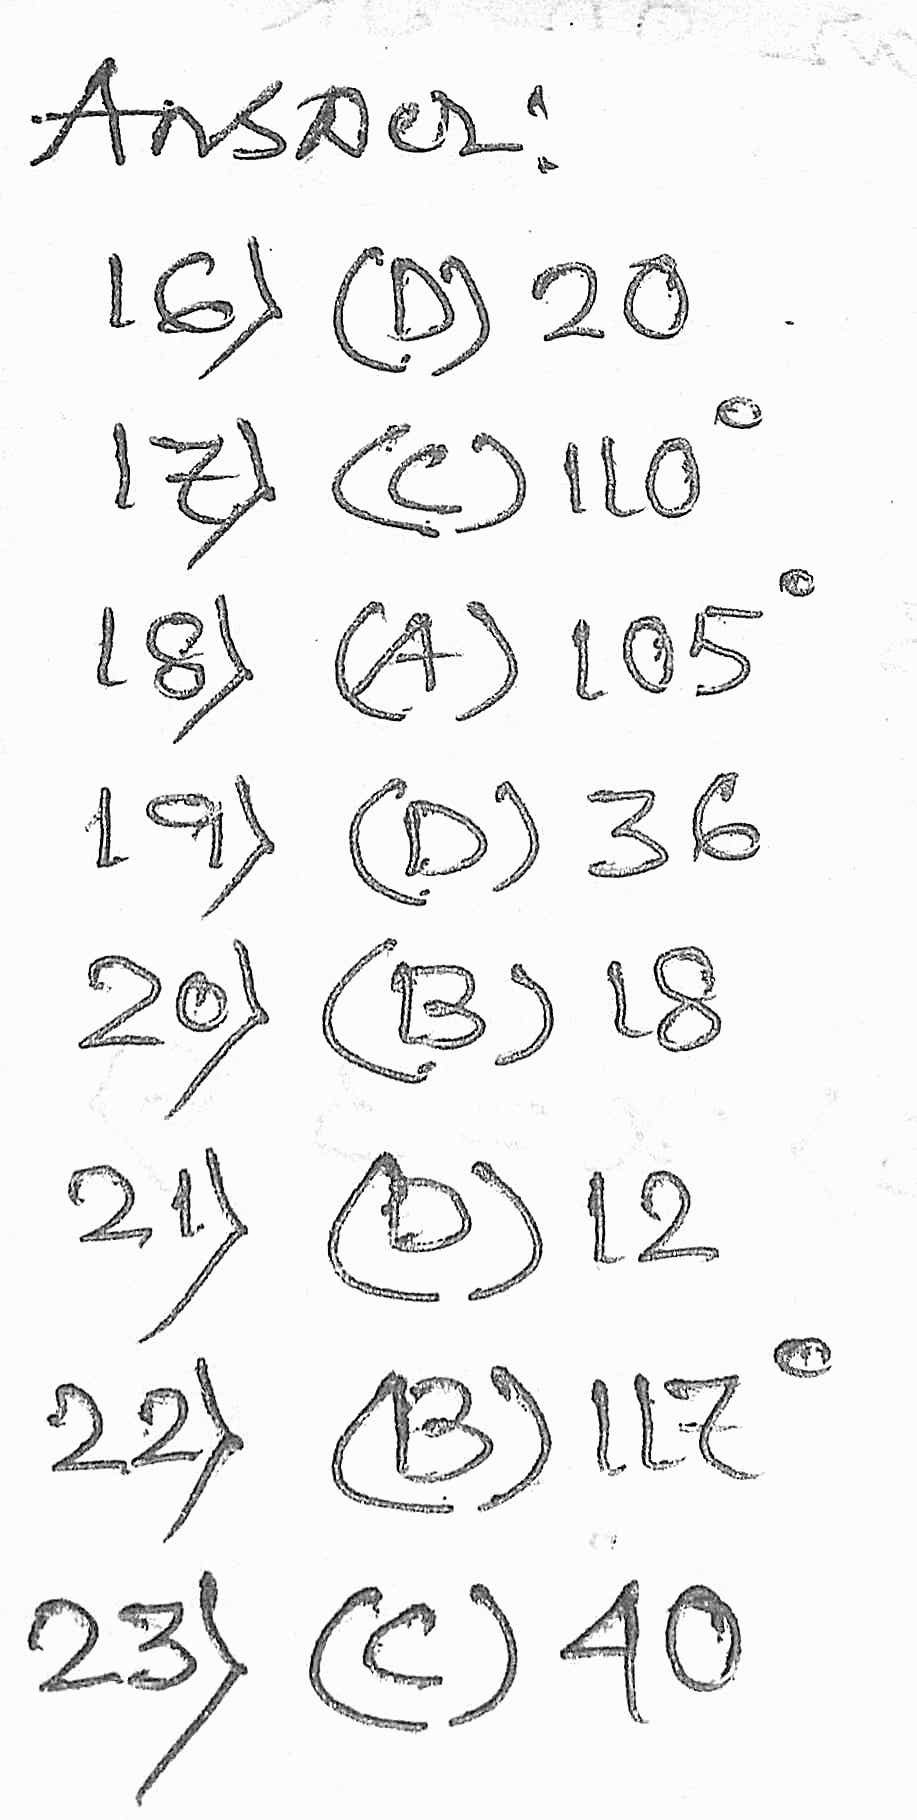 Answer:
16) (D) 20
17) (C) 110°
18) (A) 105°
19) (D) 36
20) (B) 18
21) (D) 12
22) (B) 117°
23) (C) 40